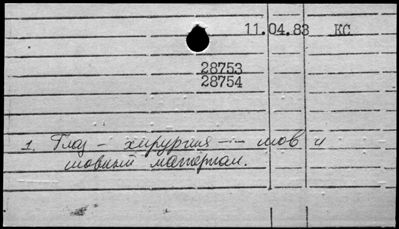 11.04.83 КС
28753
28754
1. Глаз - хирургия - шов и
шовный материал.